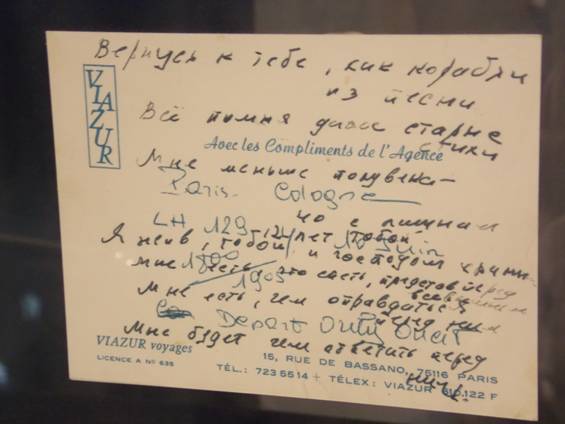 Вернусь к тебе, как корабли
из песни
VIAZUR
Всё помня даже старые
стихи
Avec les Compliments de l'Agence
Мне меньше полувека—
Paris - Cologne
40 с лишним
LH 129
Я жив, тобой и господом храним
Мне есть, что спеть, представ перед
1905
всевышним
Мне есть, чем оправдаться
перед ним
Depart Orly Ouest
Мне будет чем ответить перед
ним.
VIAZUR voyages
LICENCE A No 635
15, RUE DE BASSANO, 75116 PARIS
TÉL.: 723 55 14 + TÉLEX: VIAZUR 610.122 F